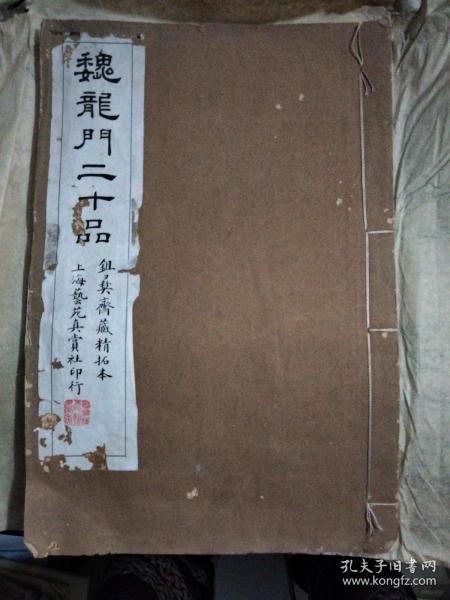 魏龍門二十品
鉏⺀龏齋藏精拓本
上海藝苑真賞社印行
孔夫子旧书网
www.kongfz.com